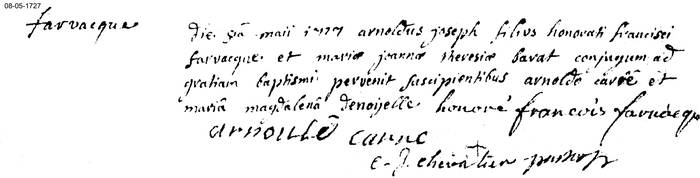 08-05-1727
farvacque
die 8a maii 1727 arnoldus joseph filius honorati francisci
farvacque et mariæ joannæ theresiæ barat conjugum ad
gratiam baptismi pervenit suscipientibus arnoldo carré et
mariâ magdalenâ denoijelle. honoré francois farvacque
arnould carre
chevallier pastor